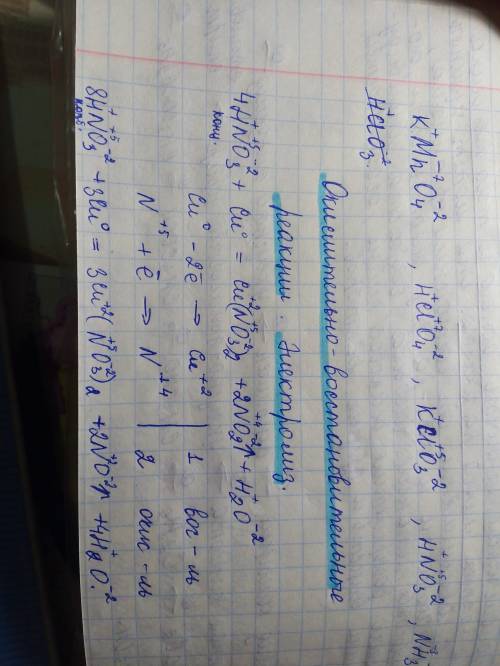 K⁺Mn⁺⁷O₄⁻², H⁺Cl⁺⁷O₄⁻², K⁺Cl⁺⁵O₃⁻², H⁺N⁺⁵O₃⁻², NH₃
H⁺ClO₃⁻².
Окислительно-восстановительные
реакции. Электролиз.
4H⁺N⁺⁵O₃⁻² + Cu⁰ = Cu⁺²(N⁺⁵O₃⁻²)₂ + 2N⁺⁴O₂⁻²↑ + H₂⁺O⁻²
конц.
Cu⁰ - 2ē → Cu⁺² | 1 вос-ль
N⁺⁵ + ē → N⁺⁴ | 2 окис-ль
8H⁺N⁺⁵O₃⁻² + 3Cu⁰ = 3Cu⁺²(N⁺⁵O₃⁻²)₂ + 2N⁺²O⁻²↑ + 4H₂⁺O⁻².